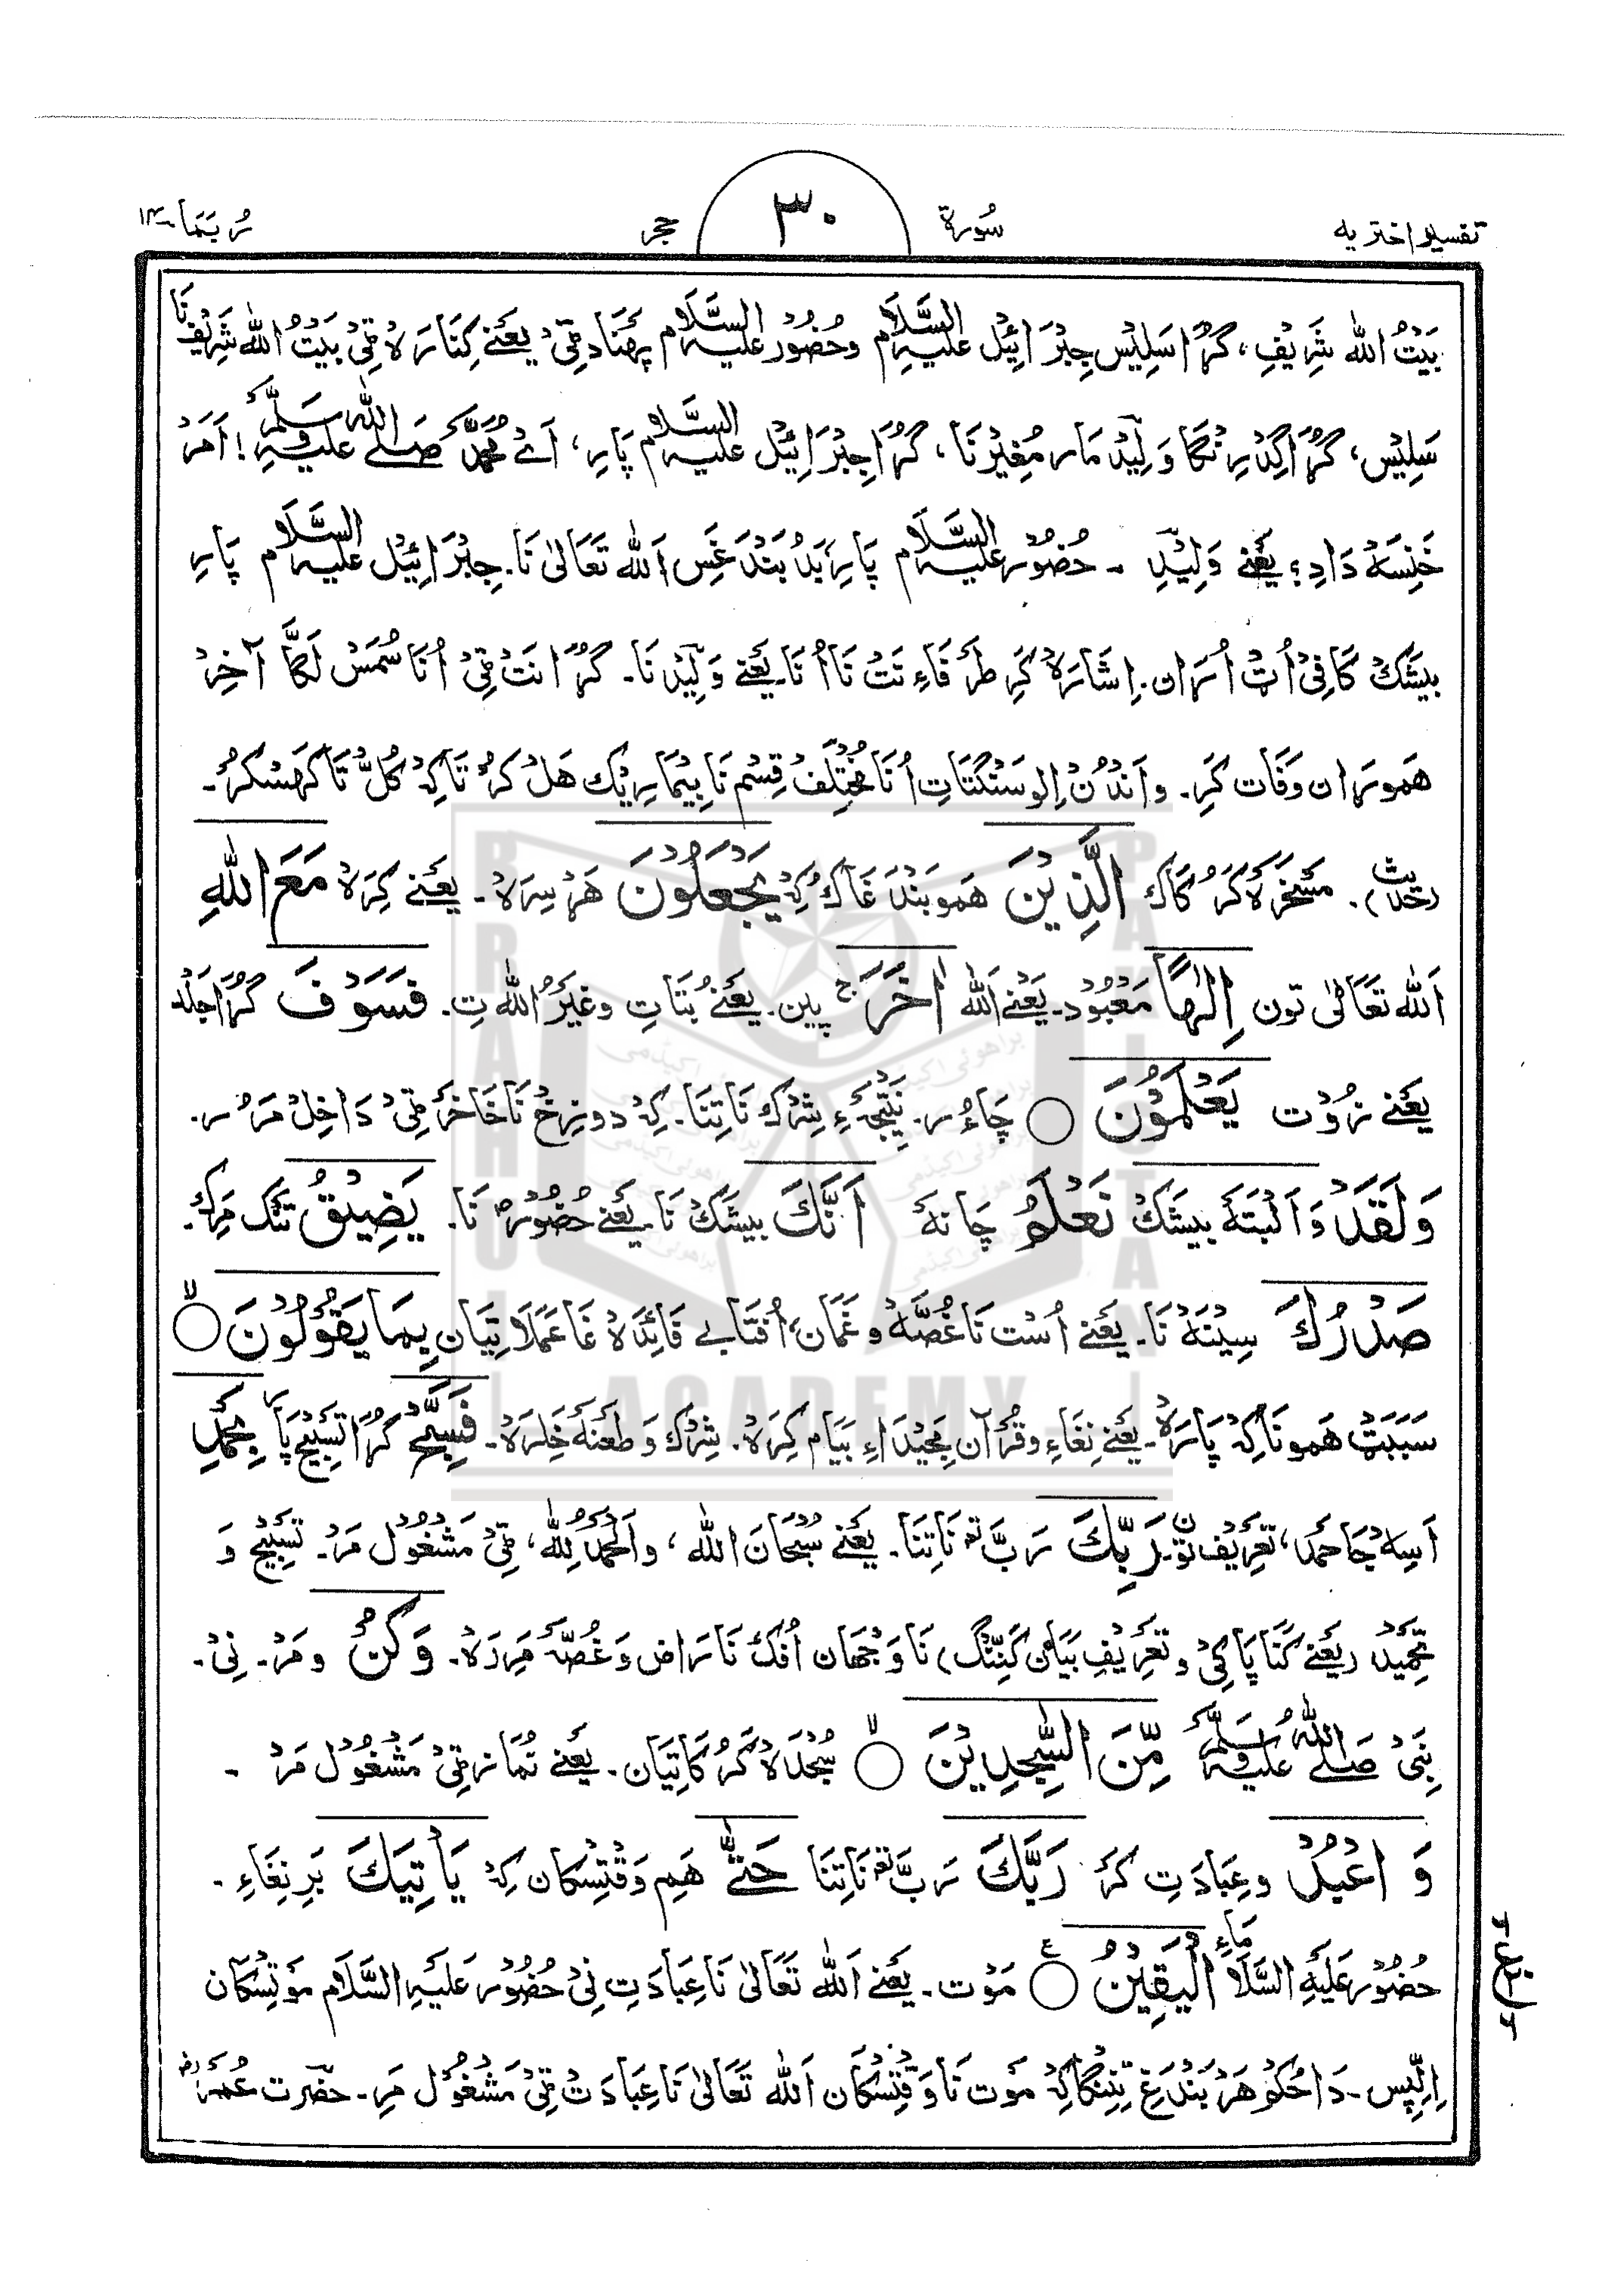 تفسیر اختریہ
سُورة
۳۰
حجر
رُبَمَا ۱۴
بَیْتُ اللّٰہ شَرِیْفِ، گُڑَا سَلِیْس جِبْرَائِیْل علیہ السَّلَام وحُضُوْر علیہ السَّلَام پہنَاد ٹِیْ یعْنے کِنَارَہ ٹِیْ بَیْتُ اللّٰہ شَرِیْف نَا
سَلِیْس، گُڑَا گِدْرِنگَا وَلِیْد مَار مُغِیْرنَا، گُڑَا جِبْرَائِیْل علیہ السَّلَام پَارِ، اَے مُحَمَّد صَلَّی اللّٰہ عَلَیْہِ وَسَلَّم! اَمَرْ
خَنِسَہ دَادِ؟ یعْنے وَلِیْدِ ۔ حُضُوْر علیہ السَّلَام پَارِ بَدُ بَنْدَغَس اَللّٰہ تَعَالیٰ نَا۔ جِبْرَائِیْل علیہ السَّلَام پَارِ
بیشَکْ کَافِیْ اُٹ اُرَان۔ اِشَارَہ کَرِ طَرَفَاءِ نَتْ نَا اُنَا یعْنے وَلِیْد نَا۔ گُڑَا نَت ٹِیْ اُنَا سُمَس لَگَّا آخِرْ
ہَمورَان وَفَات کَرِ۔ و اَنْدُنْ اِلو سَنگتَاتِ اُنَا مُخْتَلِفْ قِسْم نَا بِیْمَارِیْک ہَلْ کَرُ تَاکِہْ کُلّ تَا کَہسْکُرُ۔
(حَدِیْث)۔ مَسْخَرَہ کَرُکَاک الَّذِیْنَ ہَمو بَنْدَغَاک کِہْ یَجْعَلُوْنَ ہَرْسِرَہ۔ یعْنے کِرَہ مَعَ اللّٰہِ
اَللّٰہ تَعَالیٰ تون اِلٰهًا مَعْبُوْد۔ یعْنے اَللّٰہ اٰخَرَ ج پین۔ یعْنے بُتَاتِ وغَیْرُ اللّٰہ تِ۔ فَسَوْفَ گُڑَا جَلْد
یعْنے زُوْت یَعْلَمُوْنَ ○ چَاءُر۔ نَتِیْجَہءِ شِرْک نَا تِنَا۔ کِہْ دوزِخ نَا خَاخَر ٹِیْ دَاخِلْ مَرُر۔
وَلَقَدْ وَ اَلْبَتَّہ بیشَکْ نَعْلَمُ چَانہَ اَنَّكَ بیشَکْ نَا۔ یعْنے حُضُوْرؐ نَا۔ یَضِیْقُ تَنگ مَرِک۔
صَدْرُكَ سِیْنَہ نَا۔ یعْنے اُسْت نَا غُصَّہ و غَمَان، اُفتَا بے فَائِدَہ غَا عَمَلَاتِیَان بِمَا یَقُوْلُوْنَ ○ لا
سَبَبَٹ ہَمونَا کِہْ پَارَہ۔ یعْنے نِغَاءِ و قُرْآن مَجِیْدَاءِ بَیَام کِرَہ۔ شِرْک وَ طَعْنَہ خَلِرَہ۔ فَسَبِّحْ گُڑَا تَسْبِیْح پَا بِحَمْدِ
اَسِہ جَا حَمْد، تَعْرِیْف تُوْن۔ رَبِّكَ رَبَّ نَا تِنَا۔ یعْنے سُبْحَانَ اللّٰہ، و اَلْحَمْدُ لِلّٰہ، ٹِیْ مَشْغُوْل مَرْ۔ تَسْبِیْح وَ
تَحْمِیْد (یعْنے کَنَا پَاکِیْ و تَعْرِیْفِ بَیَان کَنِنگ) نَا وَجْہَان اُفک نَارَاض وَ غُصَّہ مَرِرَہ۔ وَ كُنْ و مَرْ۔ نِیْ۔
نَبِیْ صَلَّی اللّٰہ عَلَیْہِ وَسَلَّم مِّنَ السّٰجِدِیْنَ ○ لا سُجْدَہ کَرُکَاتِیَان۔ یعْنے نُمَاز ٹِیْ مَشْغُوْل مَرْ ۔
وَ اعْبُدْ و عِبَادَتِ کَرَ رَبَّكَ رَبَّ نَا تِنَا حَتّٰی ہَم وَقْتِسْکَان کِہْ یَاْتِیَكَ بَرِ نِغَاءِ۔
حُضُوْر عَلَیْہِ السَّلَامَاءِ الْیَقِیْنُ ○ ع مَوْت۔ یعْنے اَللّٰہ تَعَالیٰ نَا عِبَادَتِ نِیْ حُضُوْر عَلَیْہِ السَّلَام مَوْتِسْکَان
اِلِپِس۔ دَا حُکْم ہَرْ بَنْدَغ تِنگَا کِہْ مَوت نَا وَقْتِسْکَان اَللّٰہ تَعَالیٰ نَا عِبَادَت ٹِیْ مَشْغُوْل مَرِ۔ حضْرت عُمَر
BRAHUI
ACADEMY
PAKISTAN
براھوئی اکیڈمی